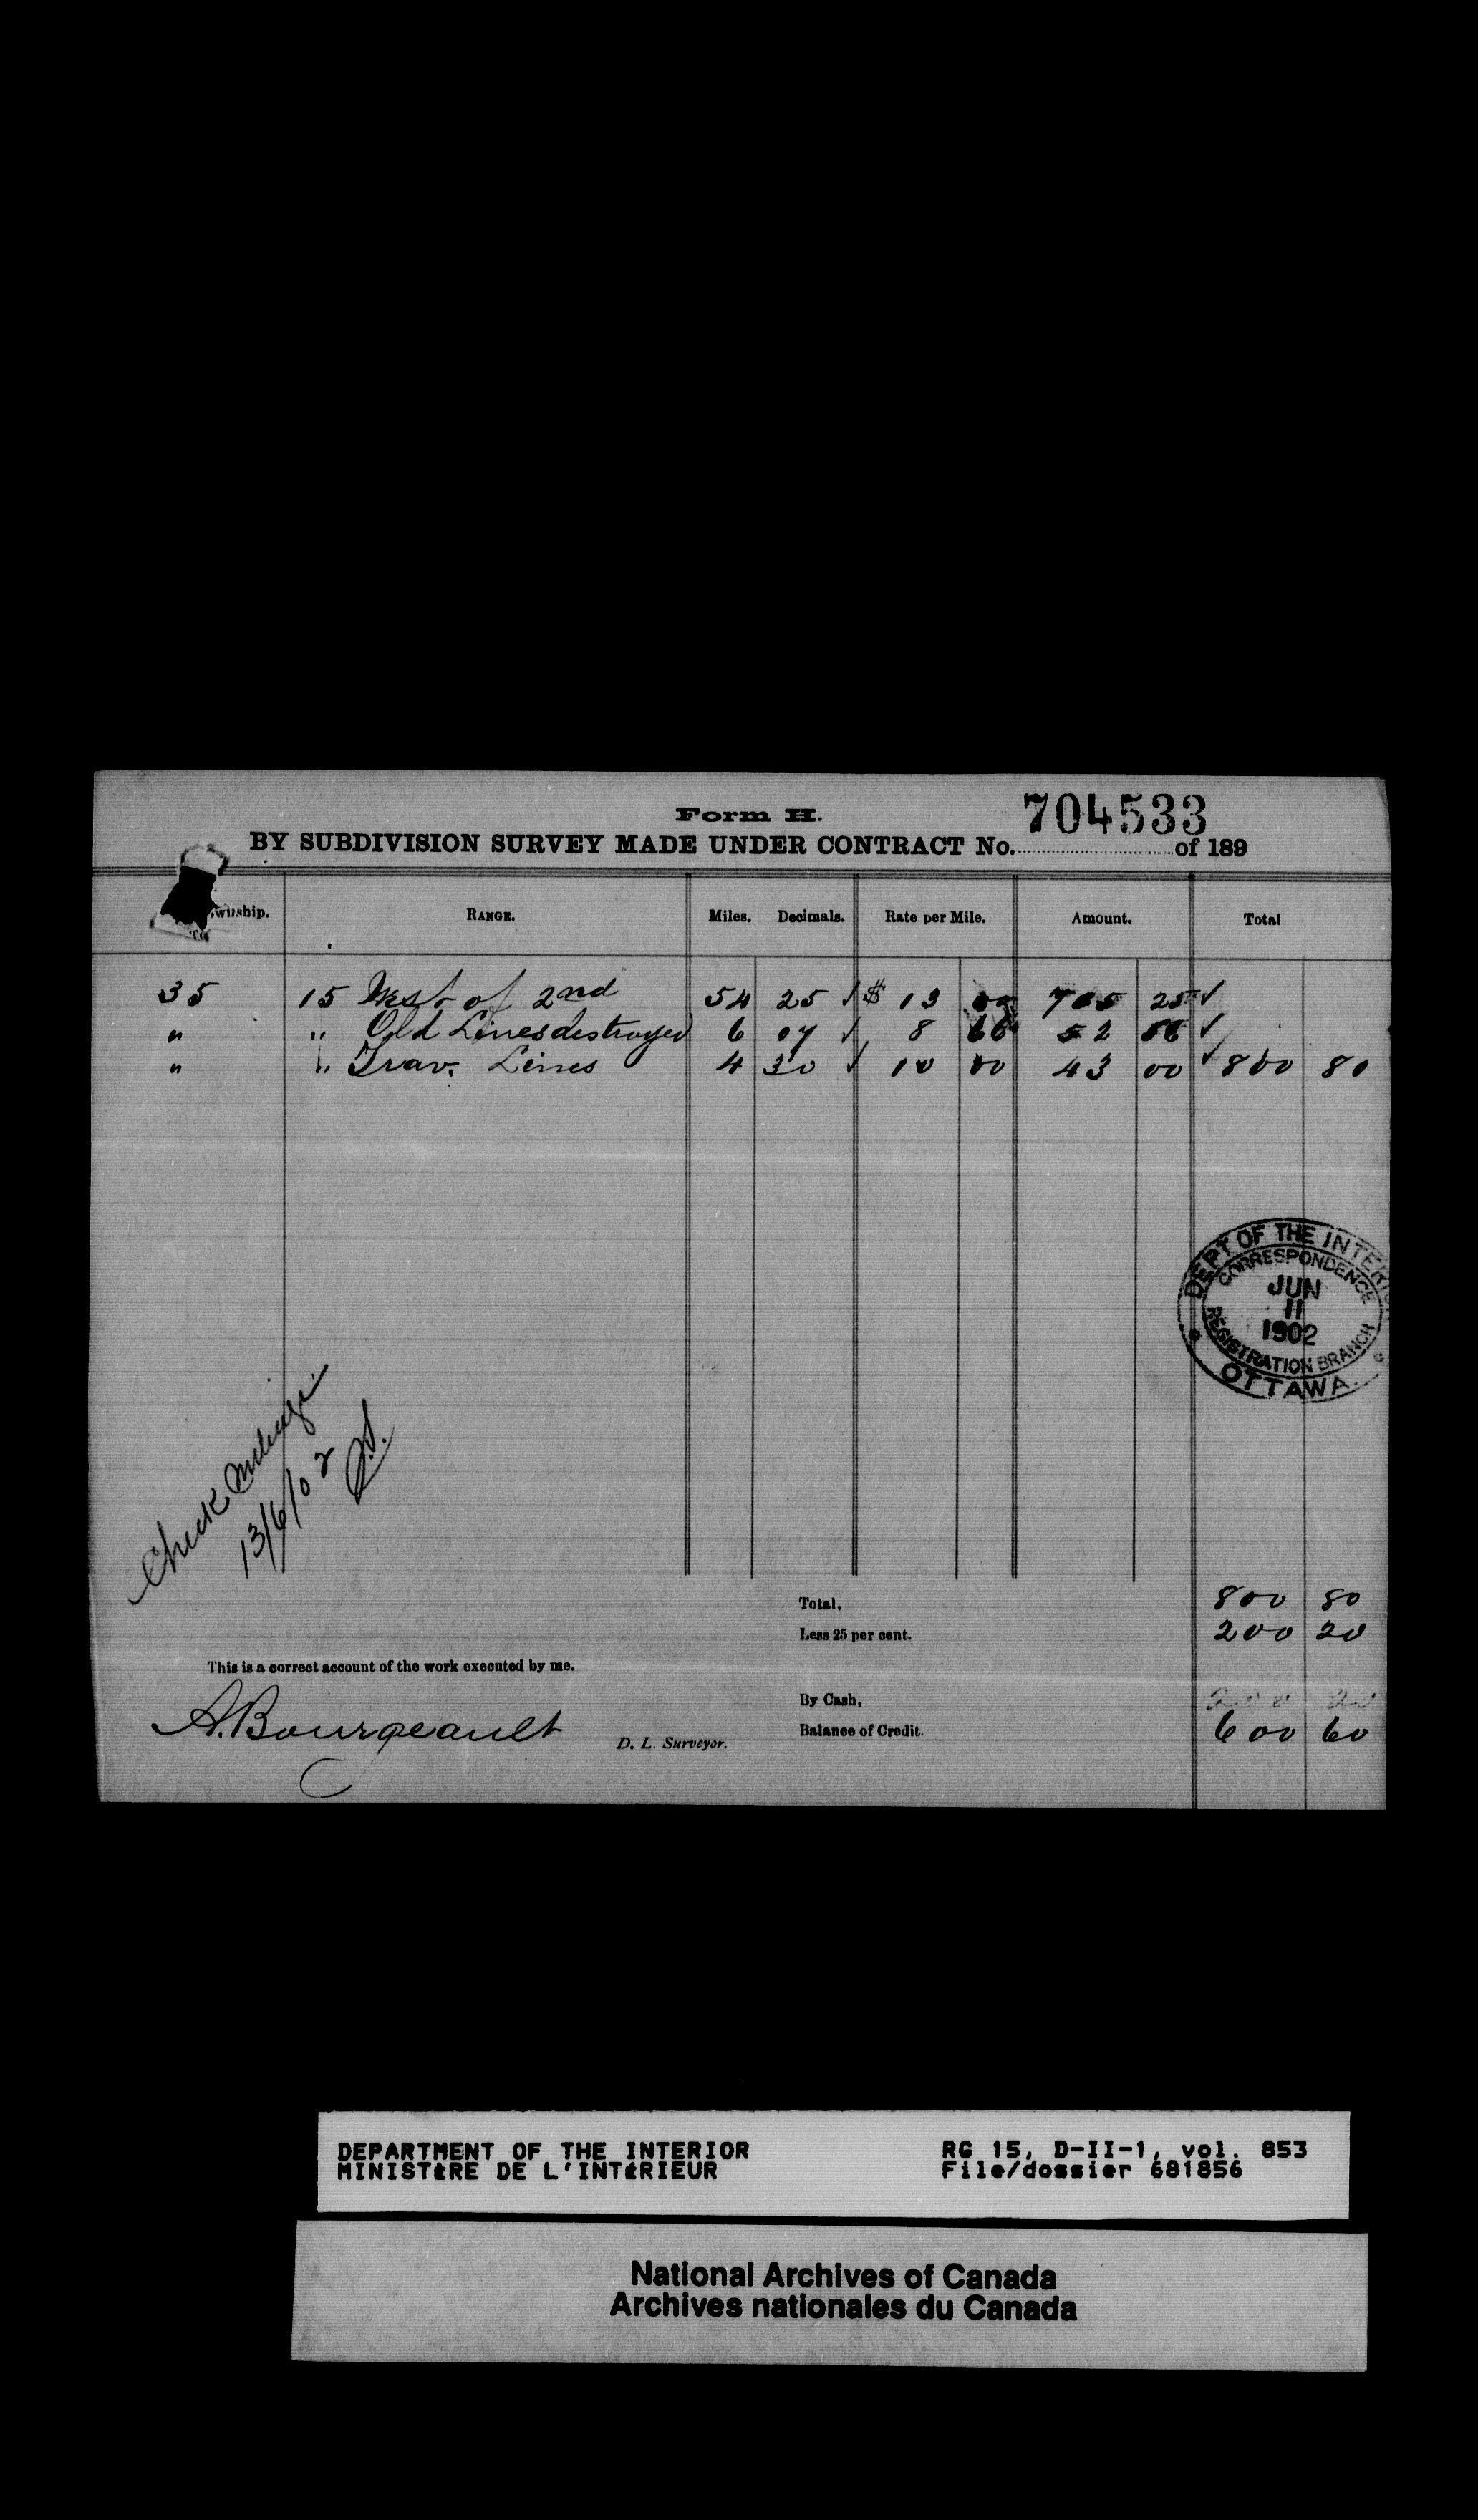 704533
Form H.
BY SUBDIVISION SURVEY MADE UNDER CONTRACT No. of 189
wnship. RANGE. Miles. Decimals. Rate per Mile. Amount. Total
35 15 West of 2nd 54 25 ✓ $ 13 00 705 25 ✓
" " Old Lines destroyed 6 07 ✓ 8 66 52 ✓
" " Trav. Lines 4 30 ✓ 10 00 43 00 ✓ 800 80
DEPT OF THE INTERI
CORRESPONDENCE
JUN
11
1902
REGISTRATION BRANCH
OTTAWA.
Check Mileage
13/6/02
Total, 800 80
Less 25 per cent. 200 20
This is a correct account of the work executed by me.
By Cash, 200 20
A. Bourgeault D. L. Surveyor. Balance of Credit. 600 60
DEPARTMENT OF THE INTERIOR RG 15, D-II-1, vol. 853
MINISTÈRE DE L'INTÉRIEUR File/dossier 681856
National Archives of Canada
Archives nationales du Canada